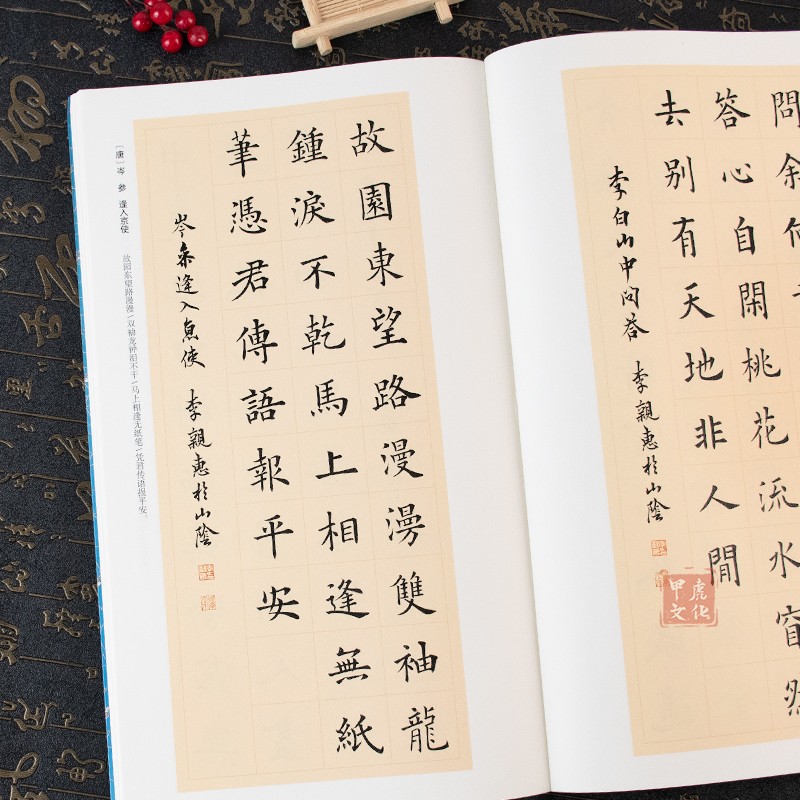 〔唐〕岑 参 逢入京使
故园东望路漫漫/双袖龙钟泪不干/马上相逢无纸笔/凭君传语报平安。
故園東望路漫漫雙袖龍
鍾淚不乾馬上相逢無紙
筆憑君傳語報平安
岑參逢入京使 李親惠於山陰
問
笑而不答心自閑桃花流水窅然
去别有天地非人閒
李白山中问答 李親惠於山陰
甲虎文化